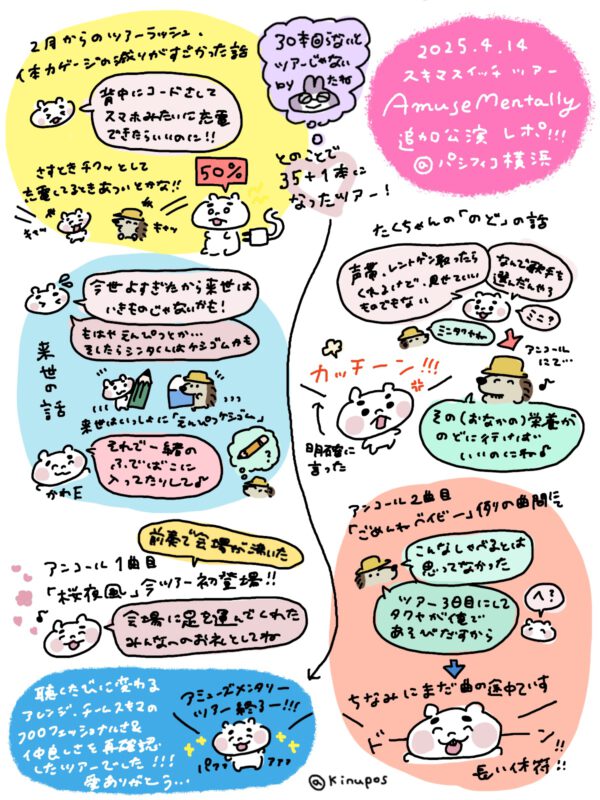 2025.4.14
スキマスイッチツアー
AmuseMentally
追加公演 レポ!!!
@パシフィコ横浜
30本回らないと
ツアーじゃない
by たね
とのことで
35+1本に
なったツアー!
2月からのツアーラッシュ、
体力ゲージの減りがすごかった話
背中にコードさして
スマホみたいに充電
できたらいいのに!!
さすときチクッとして
充電してるときあついとかな!!
50%
キャッ
キャッ
たくちゃんの「のど」の話
声帯、レントゲン取ったら
くれるけど、見せていい
ものでもない
なんで歌手を
選んだんやろ
ミニ?
ミニタクやね
アンコール
にて…
カッチーン!!!
明確に
言った
その(おなかの)栄養が
のどに行けば
いいのにね♪
来世の話
今世よすぎたから来世は
いきものじゃないかも!
もはやえんぴつとか…
そしたらシンタくんはケシゴムかも
来世はいっしょに「えんぴつケシゴム」
それで一緒の
ふでばこに
入ってたりして♪
?
かわE
アンコール1曲目
前奏で会場が沸いた
「桜夜風」今ツアー初登場!!
会場に足を運んでくれた
みんなへのお礼としてね
アンコール2曲目
「ごめんねベイビー」例の曲間にて
こんなしゃべるとは
思ってなかった
ツアー3日目にして
タクヤが俺で
あそびだすから
へ?
ちなみにまだ曲の途中です
ドーン
長い休符!!
聴くたびに変わる
アレンジ、チームスキマの
プロフェッショナルさ&
仲良しさを再確認
したツアーでした!!!
愛ありがとう…
アミューズメンタリー
ツアー終了ー!!!
パァァ
ァァァ
@kinupos